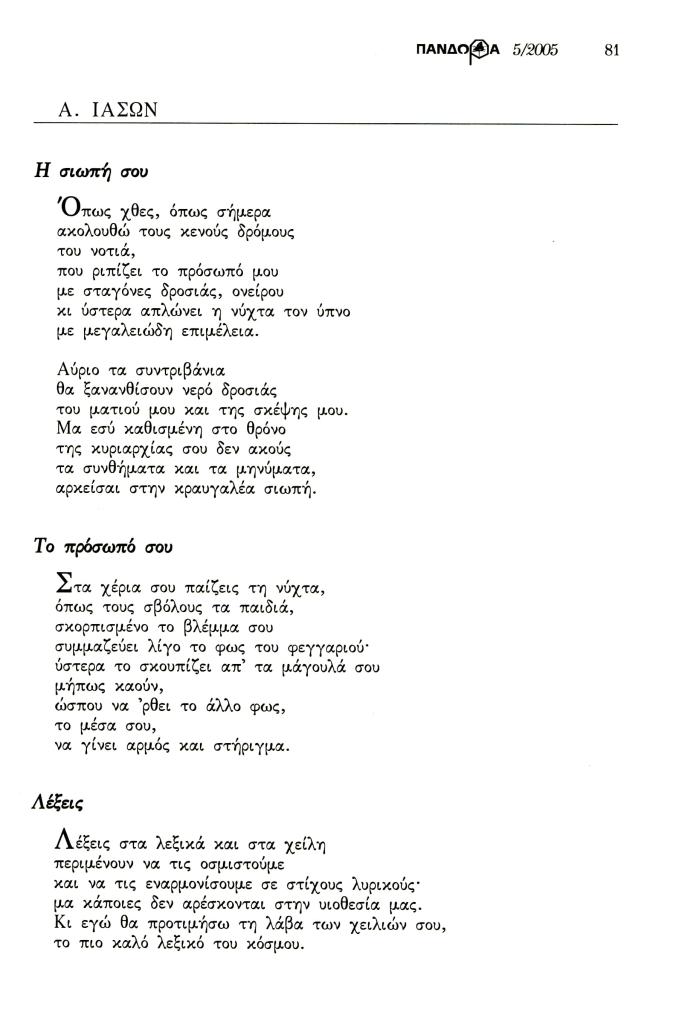 ΠΑΝΔΟΡΑ 5/2005 81
Α. ΙΑΣΩΝ
Η σιωπή σου
Όπως χθες, όπως σήμερα
ακολουθώ τους κενούς δρόμους
του νοτιά,
που ριπίζει το πρόσωπό μου
με σταγόνες δροσιάς, ονείρου
κι ύστερα απλώνει η νύχτα τον ύπνο
με μεγαλειώδη επιμέλεια.
Αύριο τα συντριβάνια
θα ξανανθίσουν νερό δροσιάς
του ματιού μου και της σκέψης μου.
Μα εσύ καθισμένη στο θρόνο
της κυριαρχίας σου δεν ακούς
τα συνθήματα και τα μηνύματα,
αρκείσαι στην κραυγαλέα σιωπή.
Το πρόσωπό σου
Στα χέρια σου παίζεις τη νύχτα,
όπως τους σβόλους τα παιδιά,
σκορπισμένο το βλέμμα σου
συμμαζεύει λίγο το φως του φεγγαριού·
ύστερα το σκουπίζει απ’ τα μάγουλά σου
μήπως καούν,
ώσπου να ’ρθει το άλλο φως,
το μέσα σου,
να γίνει αρμός και στήριγμα.
Λέξεις
Λέξεις στα λεξικά και στα χείλη
περιμένουν να τις οσμιστούμε
και να τις εναρμονίσουμε σε στίχους λυρικούς·
μα κάποιες δεν αρέσκονται στην υιοθεσία μας.
Κι εγώ θα προτιμήσω τη λάβα των χειλιών σου,
το πιο καλό λεξικό του κόσμου.